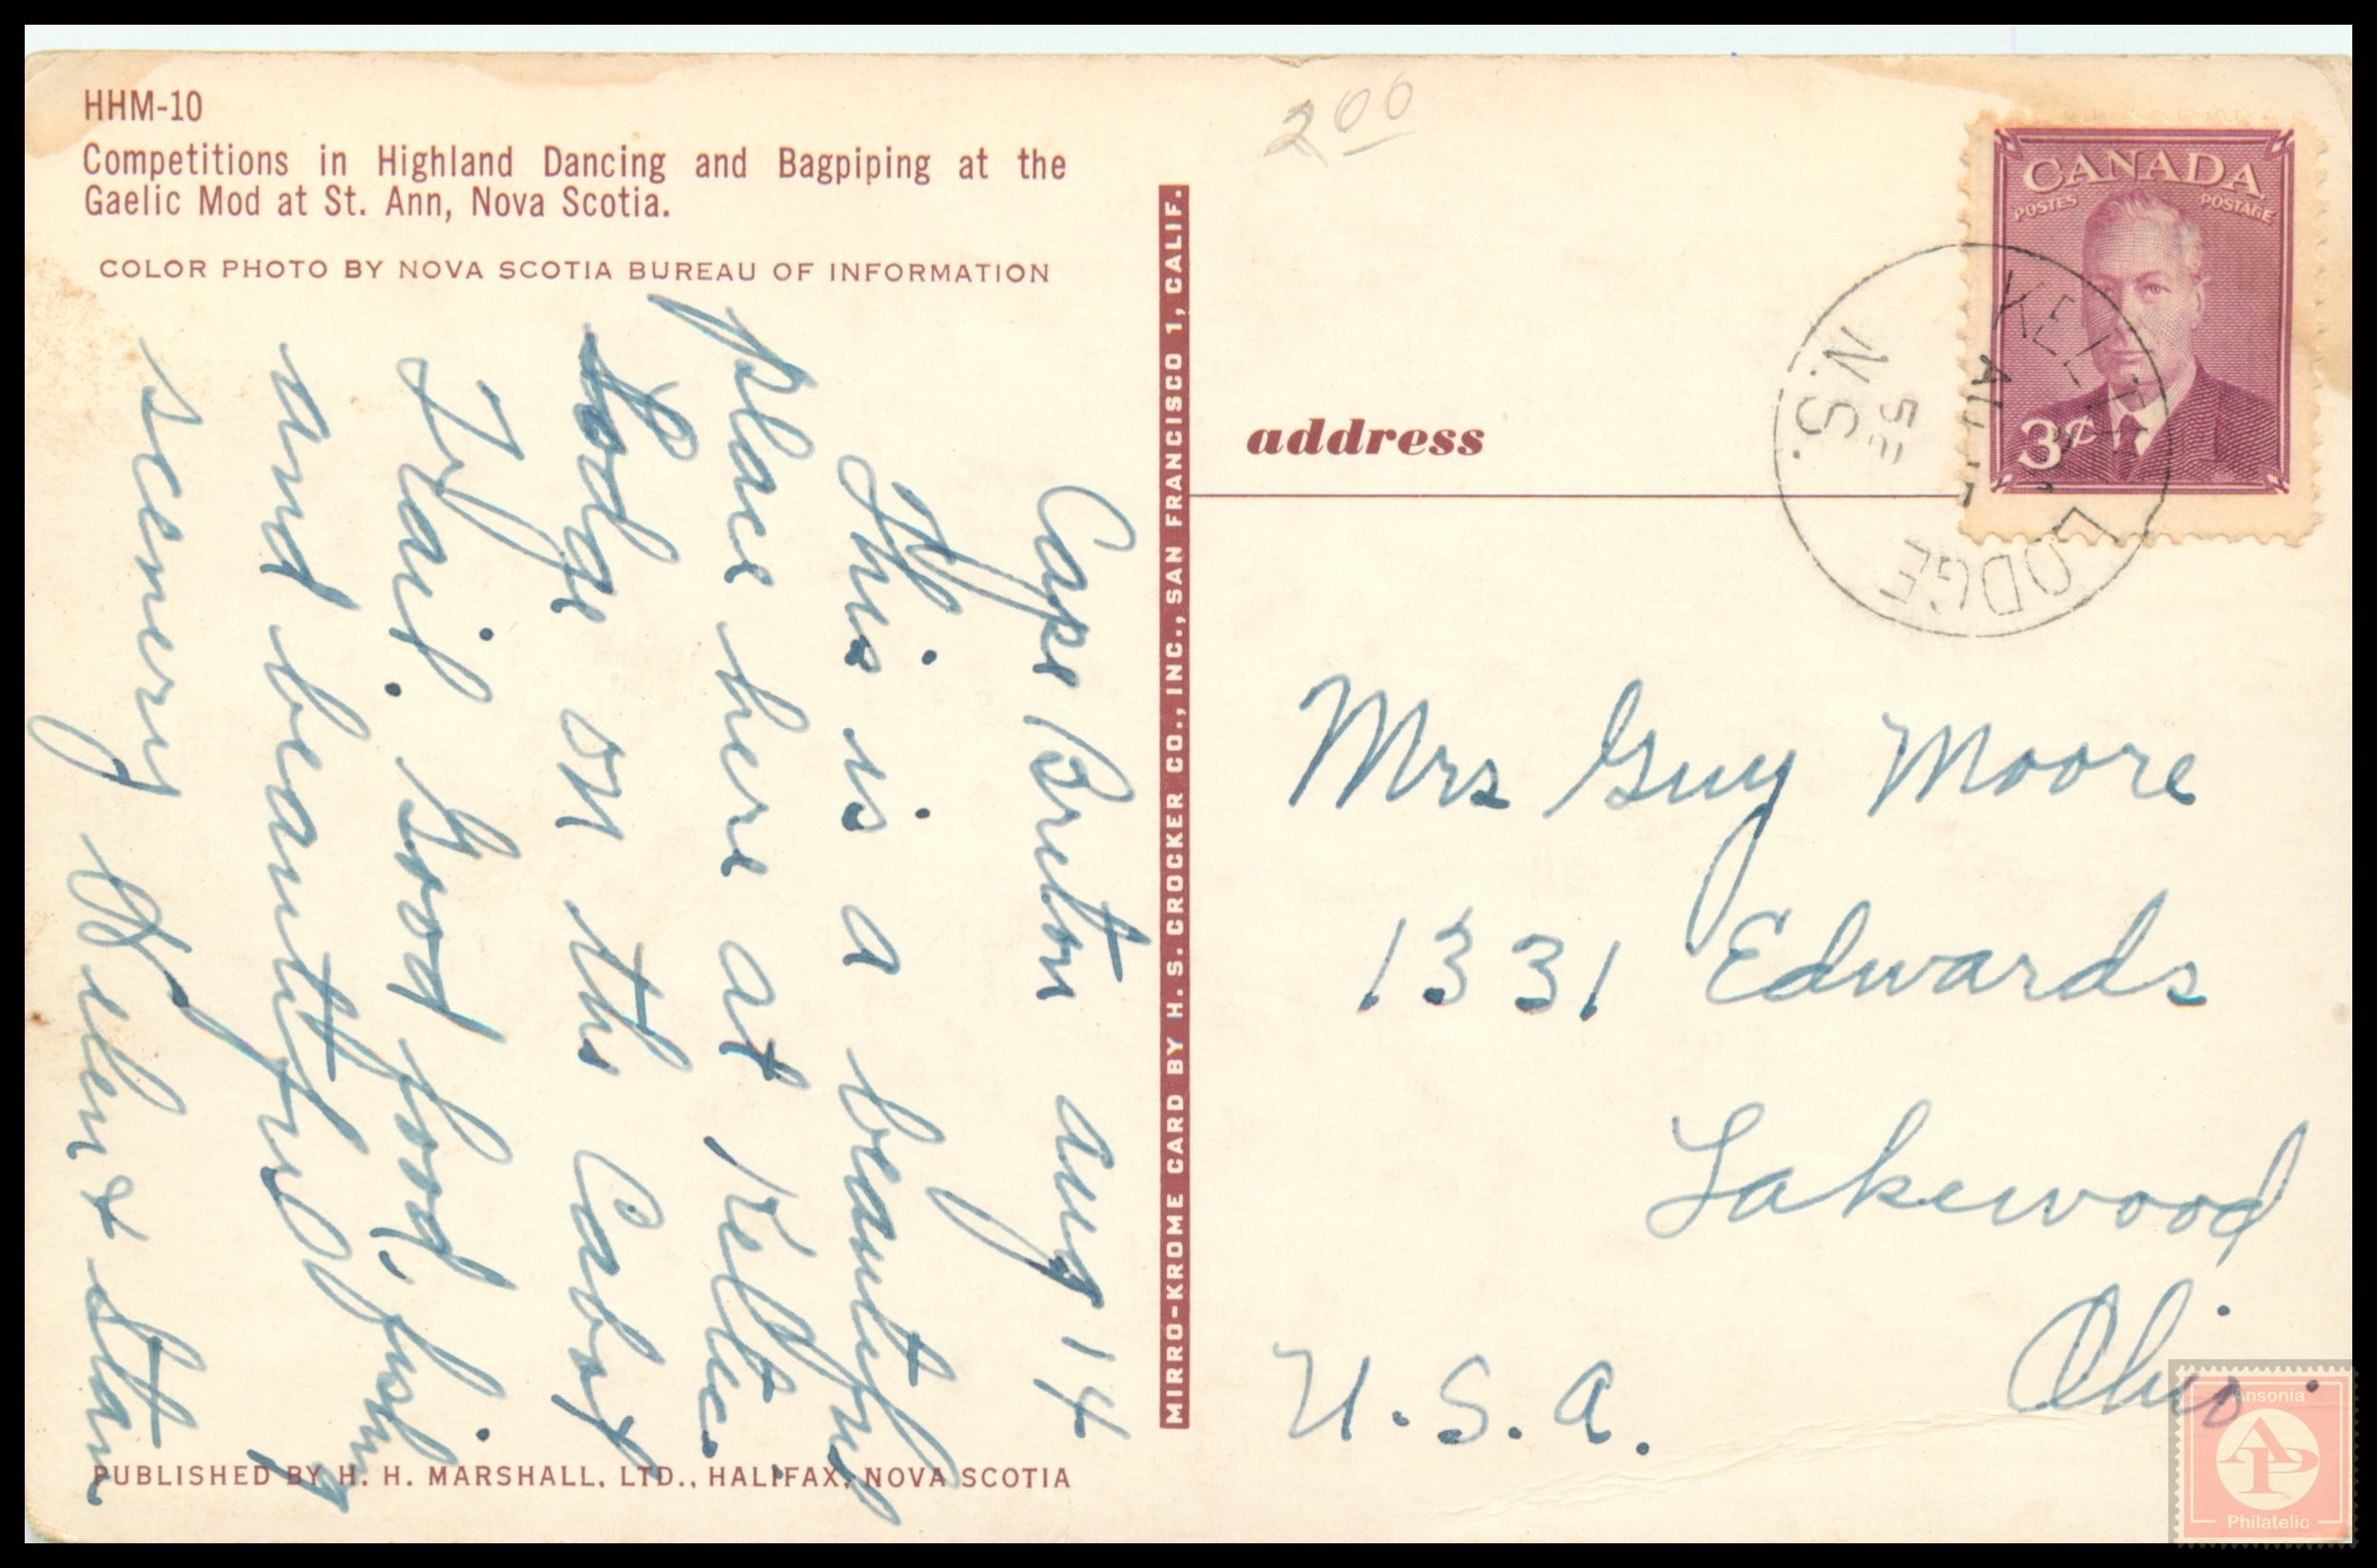 HHM-10
Competitions in Highland Dancing and Bagpiping at the
Gaelic Mod at St. Ann, Nova Scotia.
COLOR PHOTO BY NOVA SCOTIA BUREAU OF INFORMATION
Cape Breton Aug 14
This is a beautiful
place here at Keltic
Lodge on the Cabot
Trail. Good food, fishing
and beautiful
scenery Helen & Stan
PUBLISHED BY H. H. MARSHALL, LTD., HALIFAX, NOVA SCOTIA
MIRRO-KROME CARD BY H. S. CROCKER CO., INC., SAN FRANCISCO 1, CALIF.
2 00
CANADA
POSTES POSTAGE
3¢
KELTIC LODGE
N.S.
address
Mrs Guy Moore
1331 Edwards
Lakewood
Ohio.
U.S.A.
Ansonia
AP
Philatelic